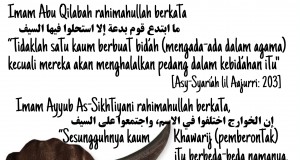 Imam Abu Qilabah rahimahullah berkata
ما ابتدع قوم بدعة إلا استحلوا فيها السيف
"Tidaklah satu kaum berbuat bid'ah (mengada-ada dalam agama)
kecuali mereka akan menghalalkan pedang dalam kebid'ahan itu"
[Asy-Syari'ah lil Aajurri: 203]
Imam Ayyub As-Sikhtiyani rahimahullah berkata,
إن الخوارج اختلفوا في الاسم، واجتمعوا على السيف
"Sesungguhnya kaum Khawarij (pemberontak)
itu berbeda-beda namanya